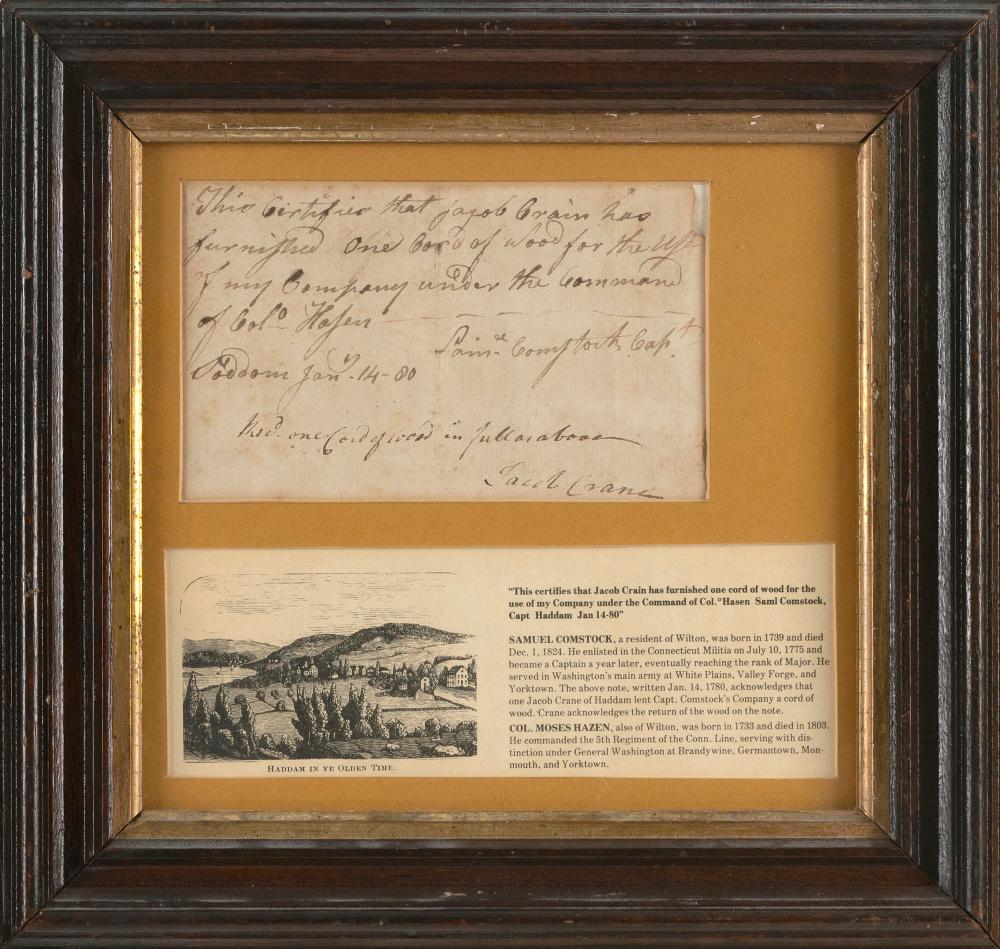 This Certifies that Jacob Crain has
furnished One Cord of Wood for the Use
of my Company under the Command
of Colo Hasen
Saml Comstock Capt
Soddom Jany. 14-80
Recd. one Cord of wood in full as above
Jacob Crane
"This certifies that Jacob Crain has furnished one cord of wood for the
use of my Company under the Command of Col.°Hasen Saml Comstock,
Capt Haddam Jan 14-80"
SAMUEL COMSTOCK, a resident of Wilton, was born in 1739 and died
Dec. 1, 1824. He enlisted in the Connecticut Militia on July 10, 1775 and
became a Captain a year later, eventually reaching the rank of Major. He
served in Washington's main army at White Plains, Valley Forge, and
Yorktown. The above note, written Jan. 14, 1780, acknowledges that
one Jacob Crane of Haddam lent Capt. Comstock's Company a cord of
wood. Crane acknowledges the return of the wood on the note.
COL. MOSES HAZEN, also of Wilton, was born in 1733 and died in 1803.
He commanded the 5th Regiment of the Conn. Line, serving with dis-
tinction under General Washington at Brandywine, Germantown, Mon-
mouth, and Yorktown.
HADDAM IN YE OLDEN TIME.